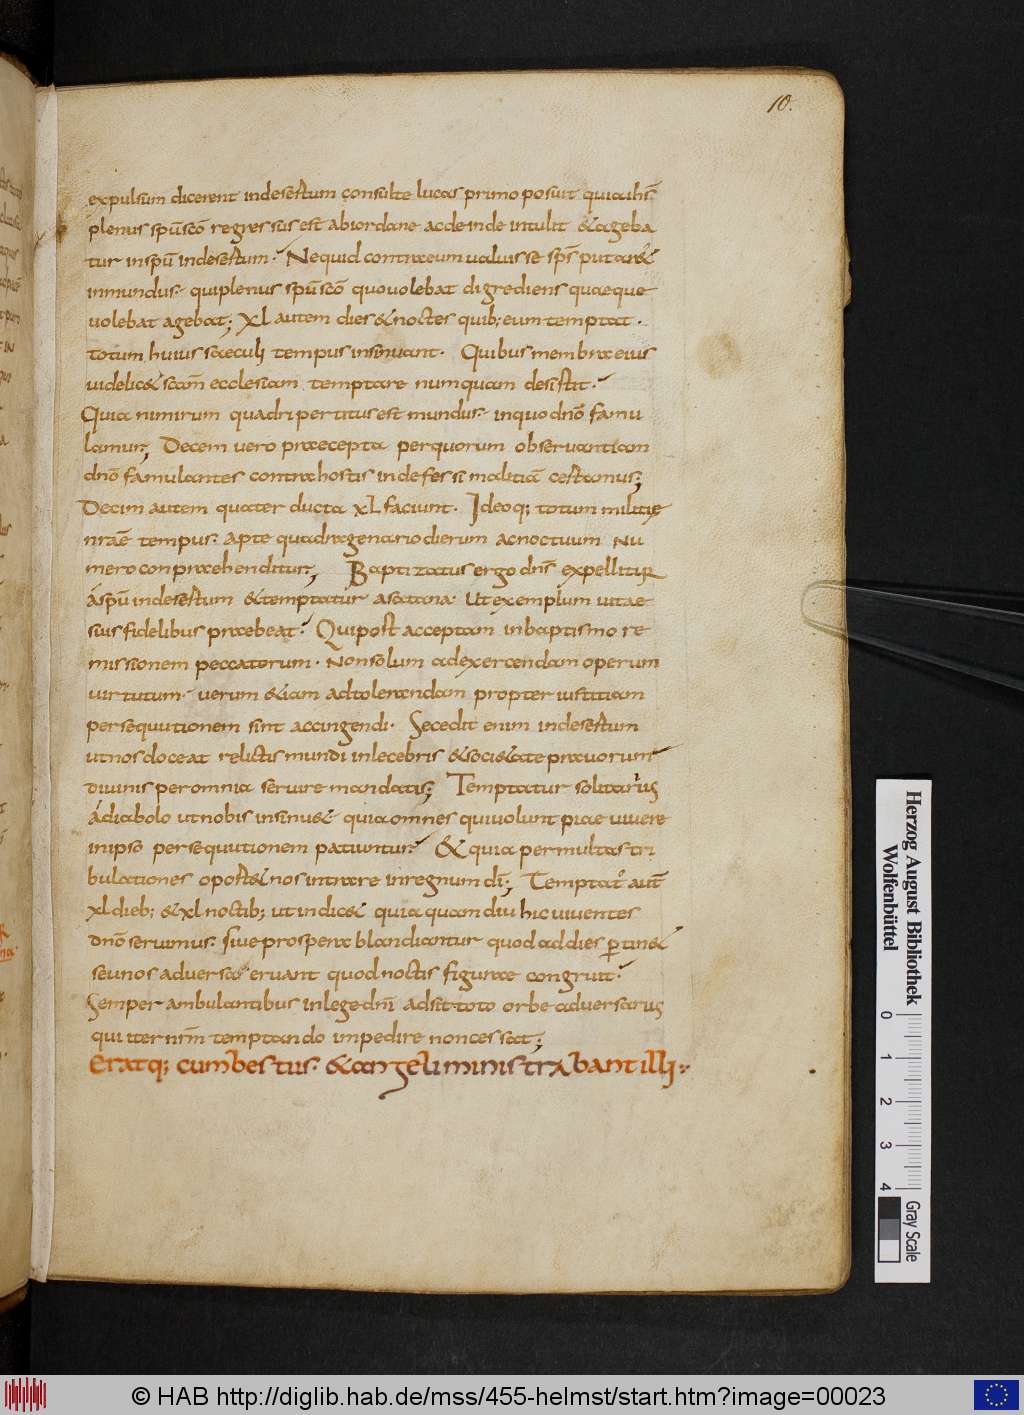 10.
expulsum dicerent indesertum consulte lucas primo posuit quia ih̄s
plenus sp̄u sc̄o regressus est abiordane ac deinde intulit &ageba
tur insp̄u indesertum. Nequid contra eum ualuisse sp̄s putar&
inmundus. qui plenus sp̄u sc̄o quo uolebat digrediens quaeque
uolebat agebat; Xl autem dies &noctes quib; eum temptat.
totum huius saeculi tempus insinuant. Quibus membra eius
uidelic& sc̄am ecclesiam temptare numquam desistit.
Quia nimirum quadripertitus est mundus. inquo dn̄o famu
lamur; Decem uero praecepta perquorum obseruantiam
dn̄o famulantes contra hostis indefessi malitiā certamus;
Decim autem quater ducta xl faciunt. Ideoq; totum militię
nr̄ae tempus. apte quadragenario dierum ac noctuum nu
mero conpraehenditur; Baptizatus ergo dn̄s expellitur
asp̄u indesertum &temptatur asatana. Ut exemplum uitae
suis fidelibus praebeat. Qui post acceptam inbaptismo re
missionem peccatorum. Non solum adexercendam operum
uirtutum. uerum &iam adtolerandam propter iustitiam
persequutionem sint accingendi. Secedit enim indesertum
utnos doceat relictis mundi inlecebris &soci&ate prauorum
diuinis peromnia seruire mandatis; Temptatur solitarius
adiabolo utnobis insinu& quia omnes qui uolunt piae uiuere
inipso persequutionem patiuntur. & quia per multas tri
bulationes oport& nos intrare inregnum dī; Temptat̄ aut̄
xl dieb; &xl noctib; ut indic& quia quamdiu hic uiuentes
dn̄o seruimus. siue prospera blandiantur quod ad dies ꝑtin&
seu nos aduersa feriant quod noctis figurae congruit.
Semper ambulantibus inlege dn̄i adsit toto orbe aduersarius
qui iter nr̄m temptando impedire non cessat;
Eratq; cum bestiis. &angeli ministrabant illi:
Herzog August Bibliothek
Wolfenbüttel
0 1 2 3 4
Gray Scale
© HAB http://diglib.hab.de/mss/455-helmst/start.htm?image=00023